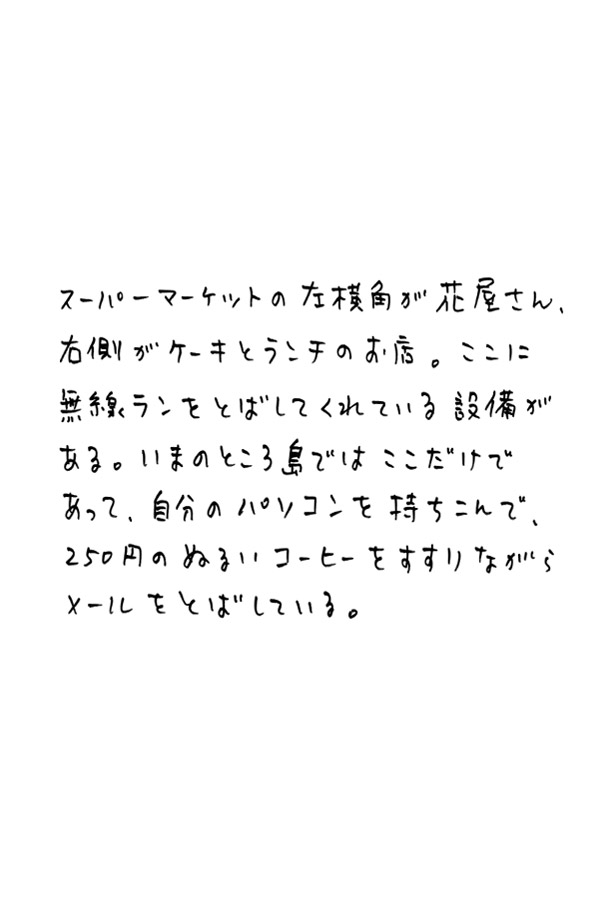 スーパーマーケットの左横角が花屋さん、
右側がケーキとランチのお店。ここに
無線ランをとばしてくれている設備が
ある。いまのところ島ではここだけで
あって、自分のパソコンを持ちこんで、
250円のぬるいコーヒーをすすりながら
メールをとばしている。